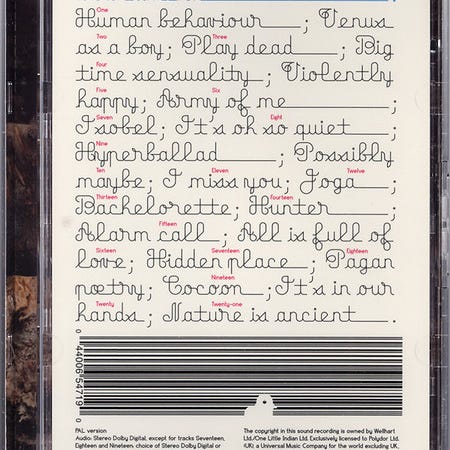 One
Human behaviour ; Venus
Two Three
as a boy; Play dead ; Big
Four
time sensuality ; Violently
Five Six
happy; Army of me ;
Seven Eight
Isobel; It's oh so quiet ;
Nine
Hyperballad ; Possibly
Ten Eleven Twelve
maybe; I miss you; Joga ;
Thirteen Fourteen
Bachelorette; Hunter ;
Fifteen
Alarm call ; All is full of
Sixteen Seventeen Eighteen
love; Hidden place ; Pagan
Nineteen
poetry; Cocoon ; It's in our
Twenty Twenty-one
hands; Nature is ancient .
0 44006 54719 0
PAL version
Audio: Stereo Dolby Digital, except for tracks Seventeen,
Eighteen and Nineteen: choice of Stereo Dolby Digital or
The copyright in this sound recording is owned by Wellhart
Ltd./One Little Indian Ltd. Exclusively licensed to Polydor Ltd.
(UK): a Universal Music Company for the world excluding UK,